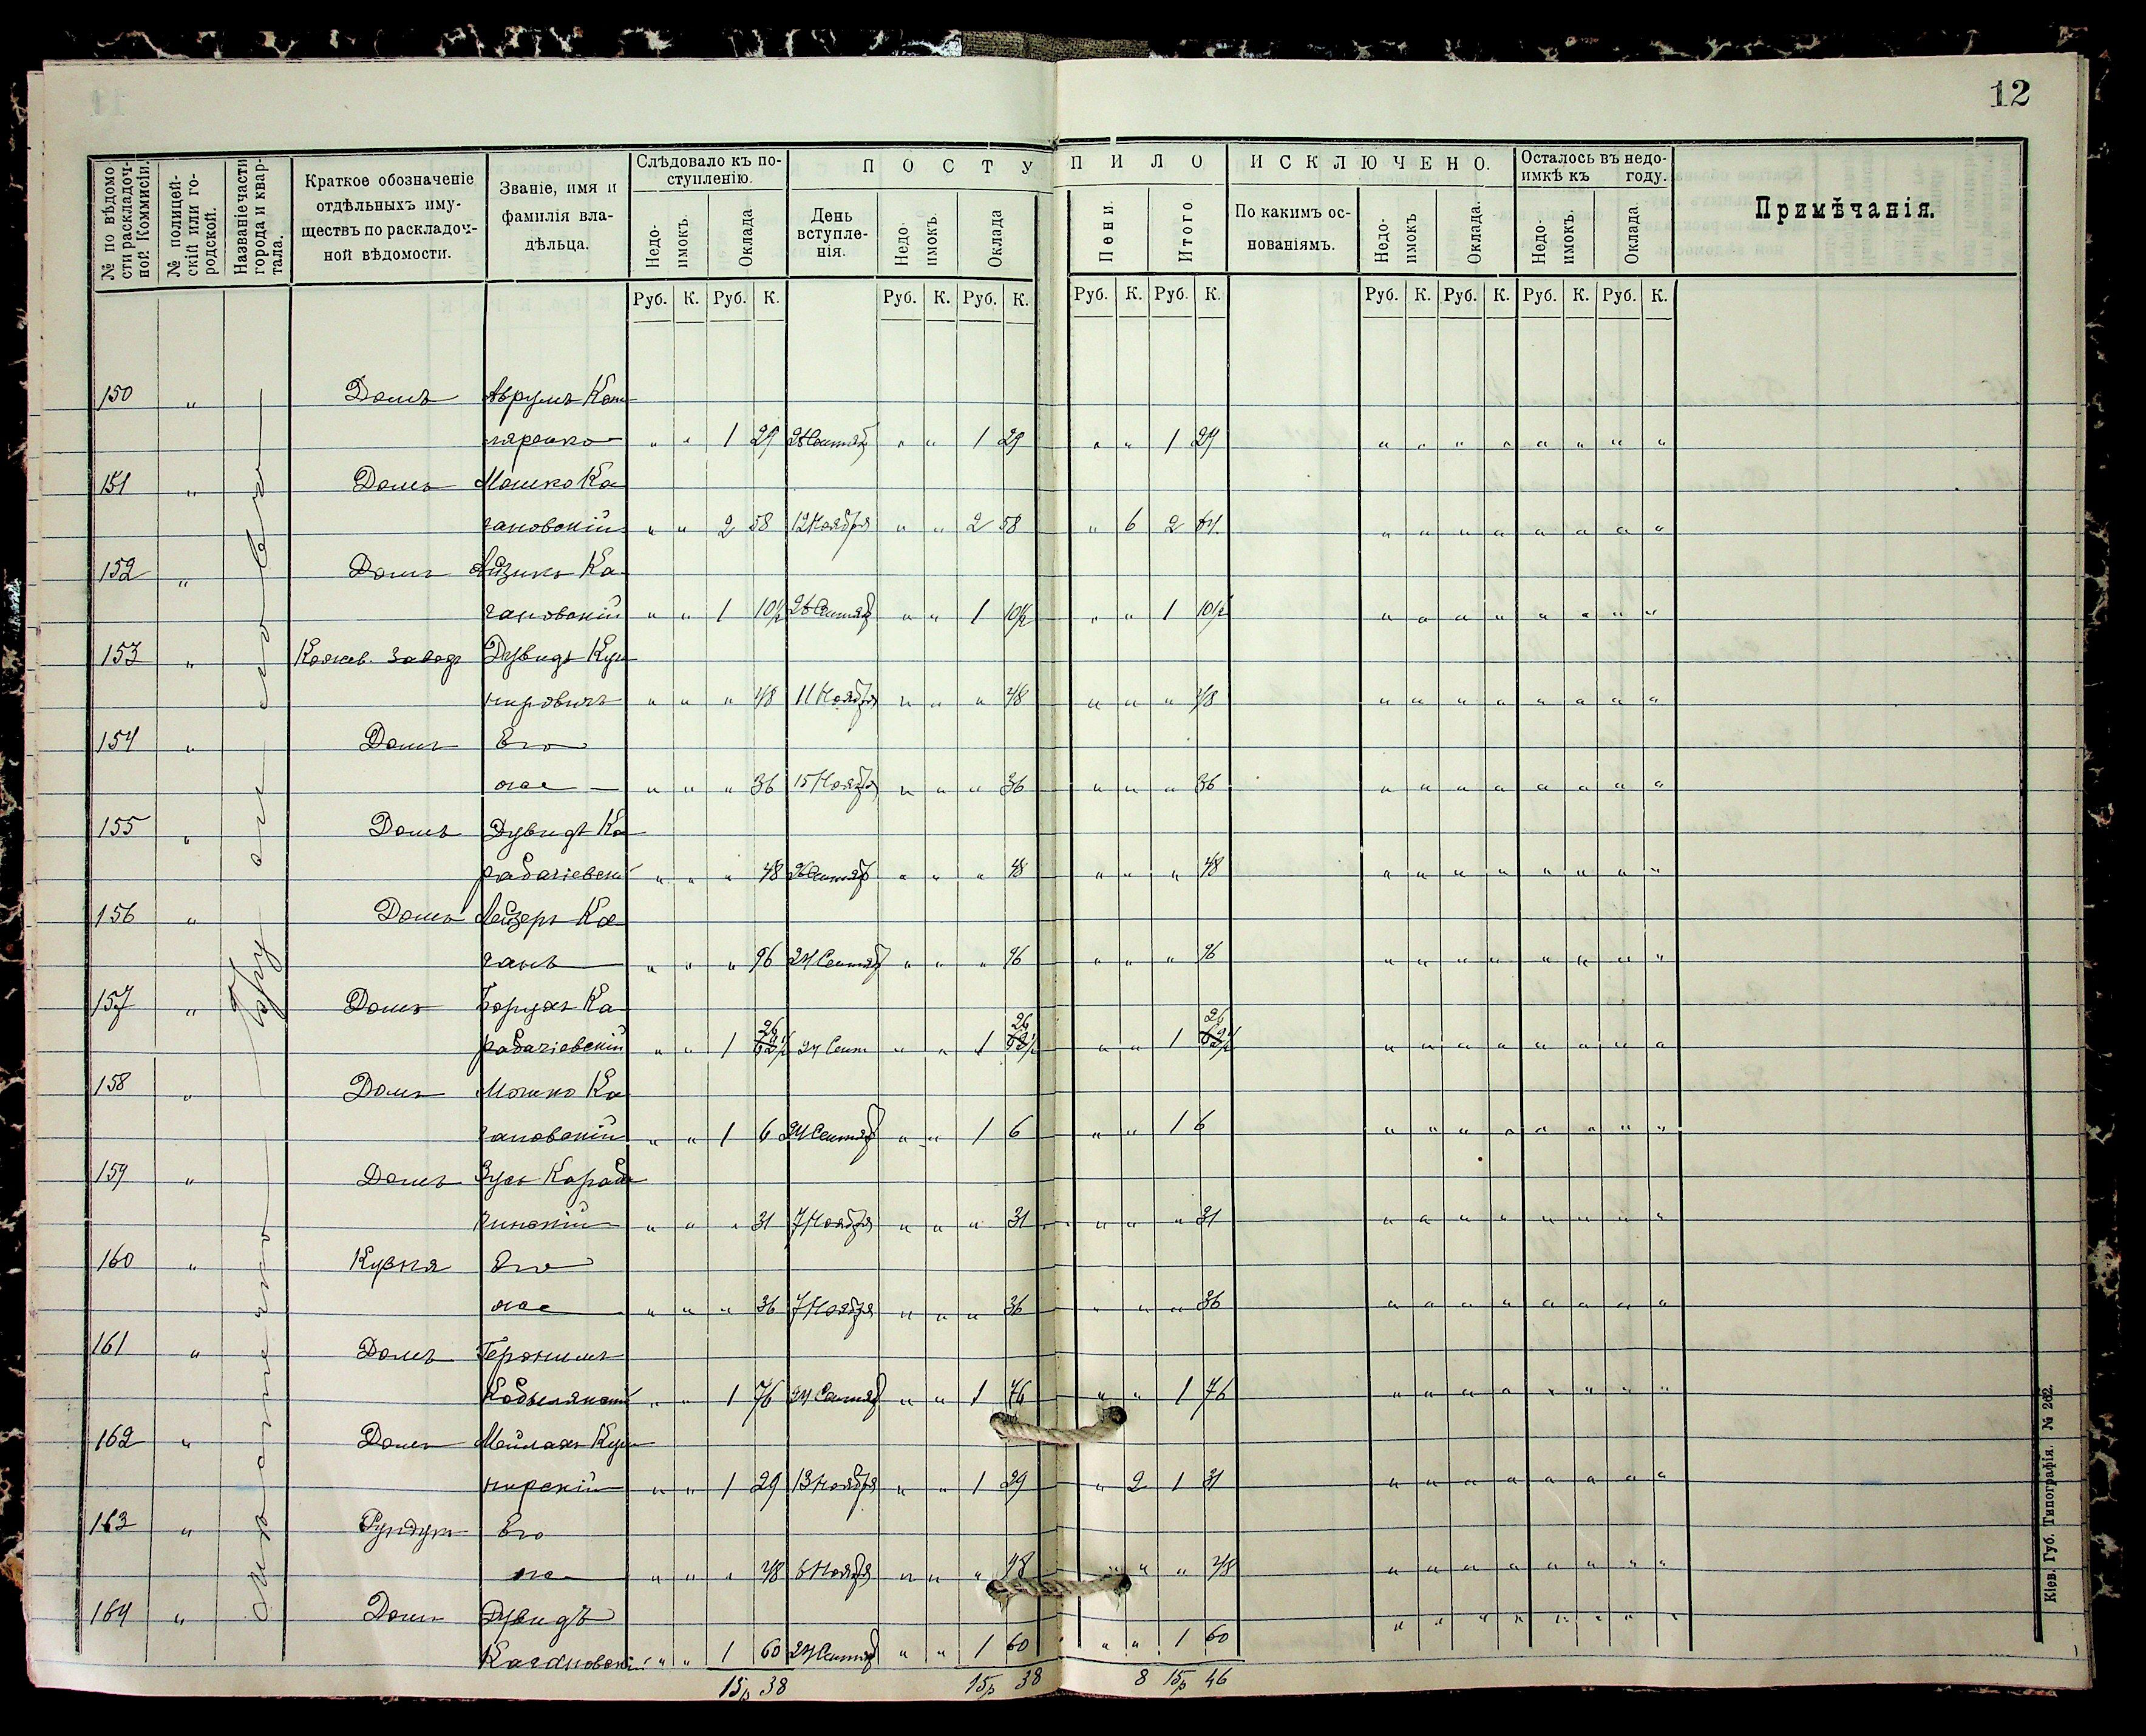 12
№ по вѣдомо сти раскладоч- ной Коммисіи.
№ полицей- скій или го- родской.
Названіе части города и квар- тала.
Краткое обозначеніе отдѣльныхъ иму- ществъ по раскладоч- ной вѣдомости.
Званіе, имя и фамилія вла- дѣльца.
Слѣдовало къ по- ступленію.
Недо- имокъ.
Оклада
П О С Т У П И Л О
День вступле- нія.
Недо- имокъ.
Оклада
Пени.
Итого
И С К Л Ю Ч Е Н О.
По какимъ ос- нованіямъ.
Недо- имокъ
Оклада.
Осталось въ недо- имкѣ къ году.
Недо- имокъ.
Оклада.
Примѣчанія.
Руб. К. Руб. К. Руб. К. Руб. К. Руб. К. Руб. К. Руб. К. Руб. К. Руб. К. Руб. К.
150 " Домъ Аврумъ
" " 1 29 " " 1 29 " " 1 29 " " " " " " " "
151 " Домъ Мошко Ка
гановскій " " 2 58 12 Ноября " " 2 58 " 6 2 64 " " " " " " " "
152 " Домъ Айзикъ Ка
гановскій " " 1 10½ " " 1 10½ " " 1 10½ " " " " " " " "
153 " Кожев. Заводъ Дувидъ Куш
нировичъ " " " 48 11 Ноября " " " 48 " " " 48 " " " " " " " "
154 " Домъ Его
же " " " 36 15 Ноября " " " 36 " " " 36 " " " " " " " "
155 " Домъ Дувидъ Ка
рабачіевскій " " " 48 " " " 48 " " " 48 " " " " " " " "
156 " Домъ Лейзеръ Ка
ганъ " " " 96 24 Сентяб " " " 96 " " " 96 " " " " " " " "
157 " Домъ Борухъ Ка
26 26 26
рабачіевскій " " 1 24 Сент " " 1 " " 1 " " " " " " " "
158 " Домъ Мошко Ка
гановскій " " 1 6 24 Сентяб " " 1 6 " " 1 6 " " " " " " " "
159 " Домъ Зусь Караба
чинскій " " " 31 7 Ноября " " " 31 " " " 31 " " " " " " " "
160 " Кузня Его
же " " " 36 7 Ноября " " " 36 " " " 36 " " " " " " " "
161 " Домъ Геронимъ
Кобылянскій " " 1 76 24 Сентяб " " 1 76 " " 1 76 " " " " " " " "
162 " Домъ Мейлахъ Куш
нирскій " " 1 29 13 Ноября " " 1 29 " 2 1 31 " " " " " " " "
163 " Его
же " " " 48 6 Ноября " " " 48 " " " 48 " " " " " " " "
164 " Домъ Дувидъ " " " " " " " "
Кагановскій " " 1 60 24 Сентяб " " 1 60 " " 1 60
15р 38 15р 38 8 15р 46
Кіев. Губ. Типографія. № 262.